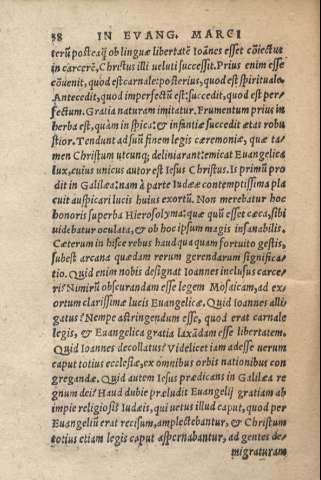 58 IN EVANG. MARCI
terũ postea q̃ ob linguæ libertatẽ Ioãnes esset cõiectus
in carcerẽ, Christus illi veluti successit. Prius enim esse
cõuenit, quod est carnale: posterius, quod est spirituale.
Antecedit, quod imperfectũ est: succedit, quod est per/
fectum. Gratia naturam imitatur. Frumentum prius in
herba est, quàm in spica: & infantiæ succedit ætas robu
stior. Tendunt ad suũ finem legis cæremoniæ, quæ ta/
men Christum utcunq; deliniarant: emicat Euangelica
lux, cuius unicus autor est Iesus Christus. Is primũ pro
dit in Galilæa: nam à parte Iudææ contemptissima pla
cuit auspicari lucis huius exortũ. Non merebatur hoc
honoris superba Hierosolyma: quæ quũ esset cæca, sibi
uidebatur oculata, & ob hoc ipsum magis insanabilis.
Cæterum in hisce rebus haud quaquam fortuito gestis,
subest arcana quædam rerum gerendarum significa/
tio. Quid enim nobis designat Ioannes inclusus carce/
ri? Nimirũ obscurandam esse legem Mosaicam, ad ex
ortum clarissimæ lucis Euangelicæ. Quid Ioannes alli
gatus? Nempe astringendum esse, quod erat carnale
legis, & Euangelica gratia laxãdam esse libertatem.
Quid Ioannes decollatus? Videlicet iam adesse uerum
caput totius ecclesiæ, ex omnibus orbis nationibus con
gregandæ. Quid autem Iesus prædicans in Galilæa re
gnum dei? Haud dubie præludit Euangelij gratiam ab
impie religiosis Iudæis, qui uetus illud caput, quod per
Euangeliũ erat recisum, amplectebantur, & Christum
totius etiam legis caput aspernabantur, ad gentes de/
migraturam